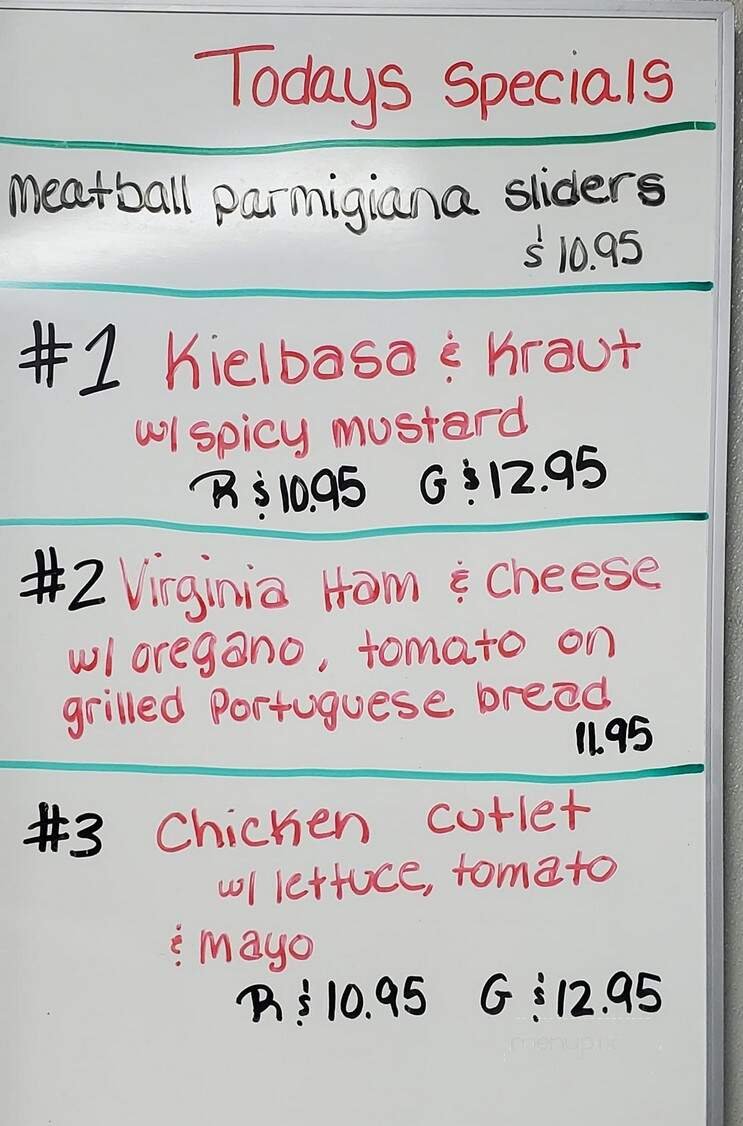 Todays Specials
meatball parmigiana sliders
$10.95
#1 Kielbasa & Kraut
w/ spicy mustard
R $10.95 G $12.95
#2 Virginia Ham & Cheese
w/ oregano, tomato on
grilled Portuguese bread
11.95
#3 Chicken cutlet
w/ lettuce, tomato
& mayo
R $10.95 G $12.95